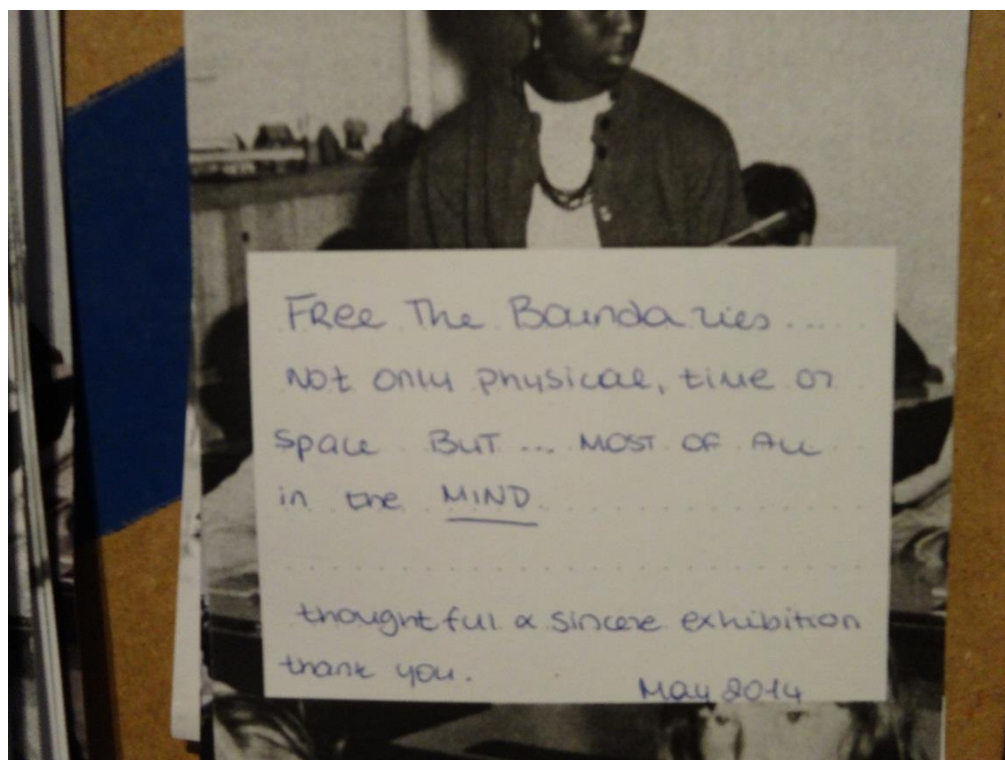 Free The Boundaries....
Not only physical, time or
space BUT... MOST OF ALL
in the MIND
thoughtful & sincere exhibition
thank you.
May 2014